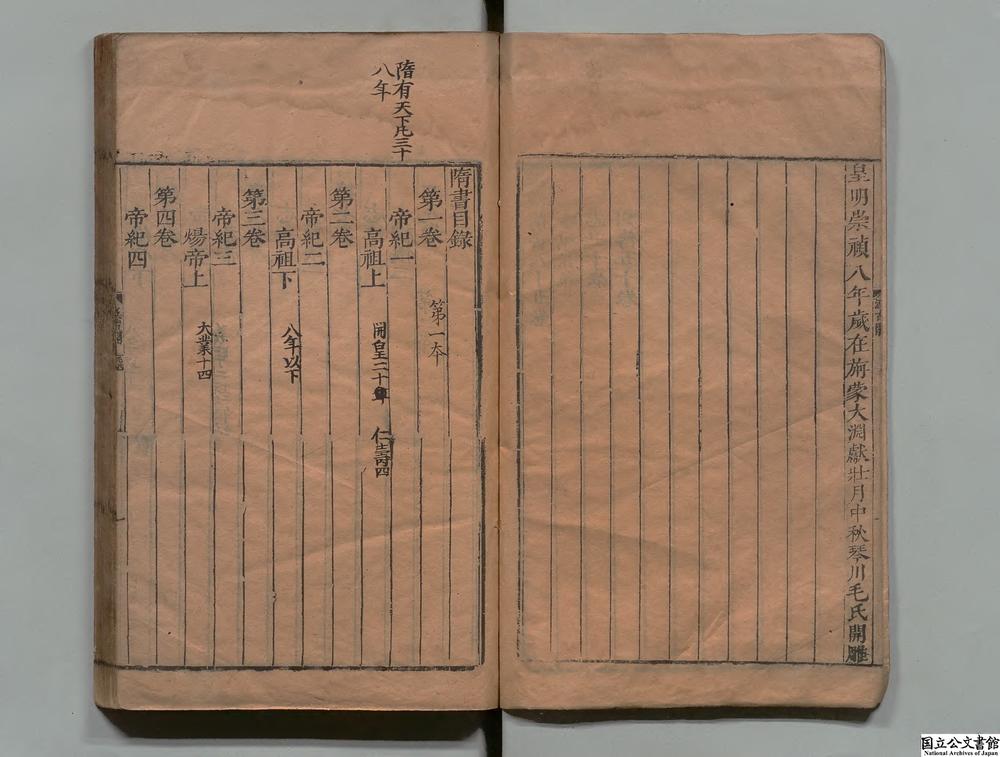 皇明崇禎八年歲在旃蒙大淵獻壯月中秋琴川毛氏開雕
隋有天下凡三十
八年
隋書目錄
第一卷
第一本
帝紀一
高祖上
開皇二十年
第二卷
帝紀二
高祖下
八年以下
第三卷
帝紀三
煬帝上
大業十四
第四卷
帝紀四
国立公文書館
National Archives of Japan